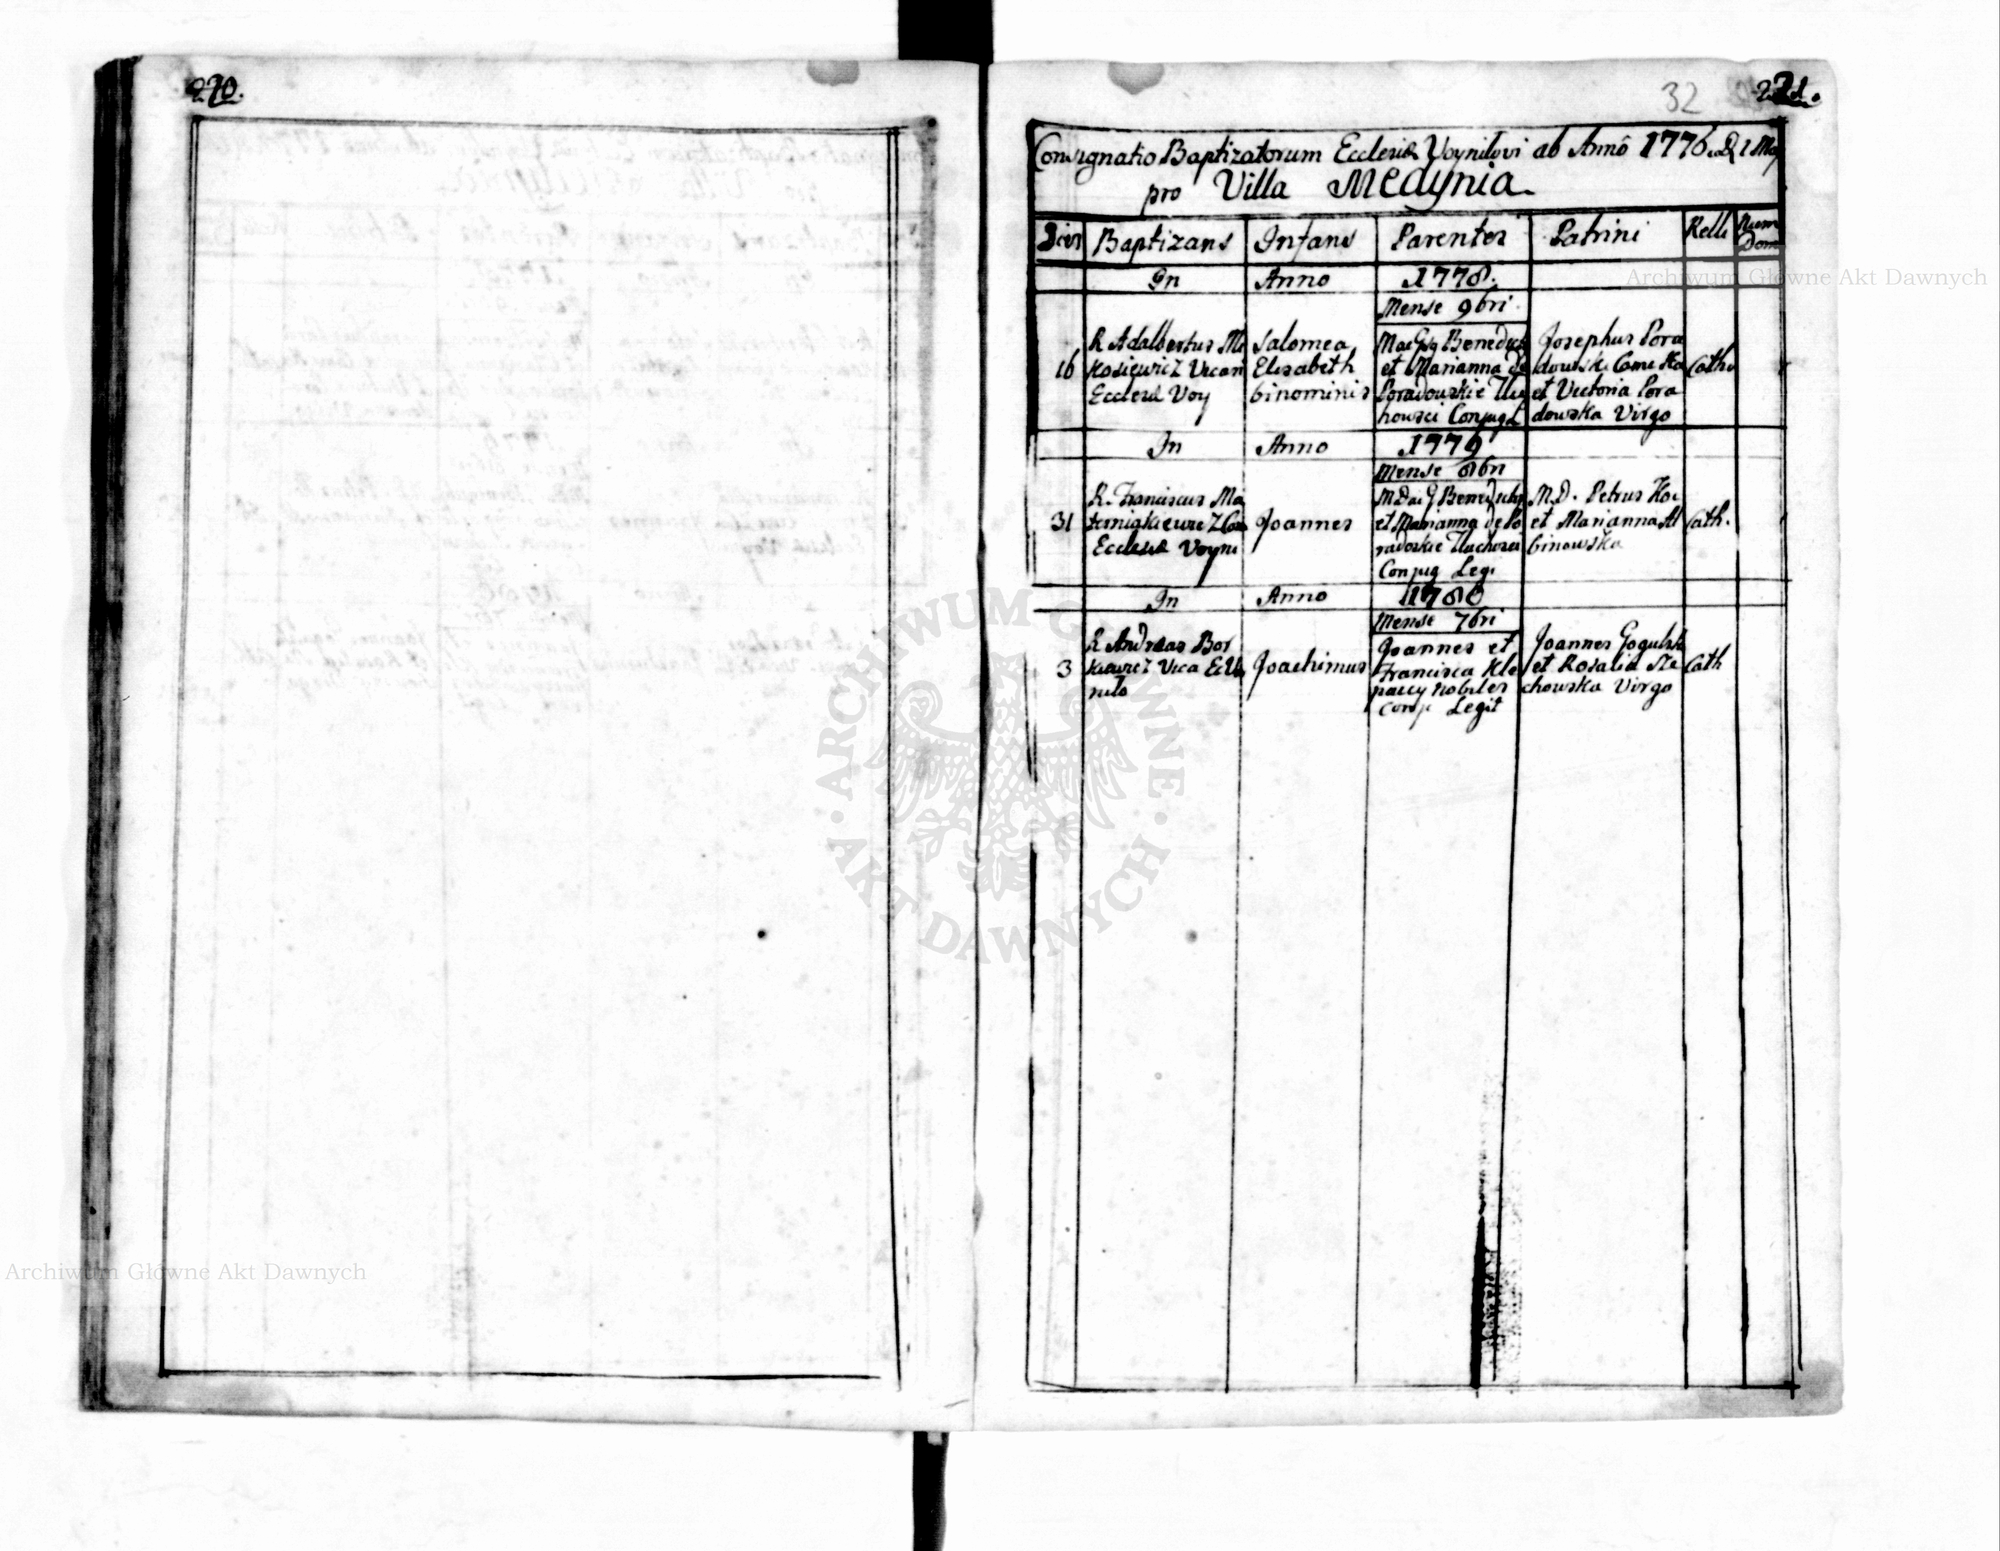 270.
32
271.
Consignatio Baptizatorum Ecclesiæ Voynilovi ab Anno 1776
pro Villa Medynia
Dies Baptizans Infans Parentes Patrini Relli Num Dom
In Anno 1778.
Mense 9bri
16
R Adalbertus Mi
kosiewicz Vicari
Ecclesiæ Voy
Salomea
Elisabeth
binominis
Benedict
et Marianna de
Poradowskie Tlu
howsci Conjug L
Josephus Pora
dowski
et Victoria Pora
dowska Virgo
Cath
In Anno 1779
Mense 8bri
31
R. Franciscus Ma
Ecclesiæ Voyni
Joannes
et Marianna de Po
radoskie Tluchowsci
Conjug Legi
M.D. Petrus
et Marianna Al
binowska
Cath.
In Anno 1780
Mense 7bri
3
R Andreas Bor
kiewicz Vica
nilo
Joachimus
Joannes et
Francisca Kle
paccy nobiles
conj Legit
Joannes Gogulsk
et Rosalia Sze
chowska Virgo
Cath
Archiwum Główne Akt Dawnych
ARCHIWUM GŁÓWNE
· AKT DAWNYCH ·
Archiwum Główne Akt Dawnych